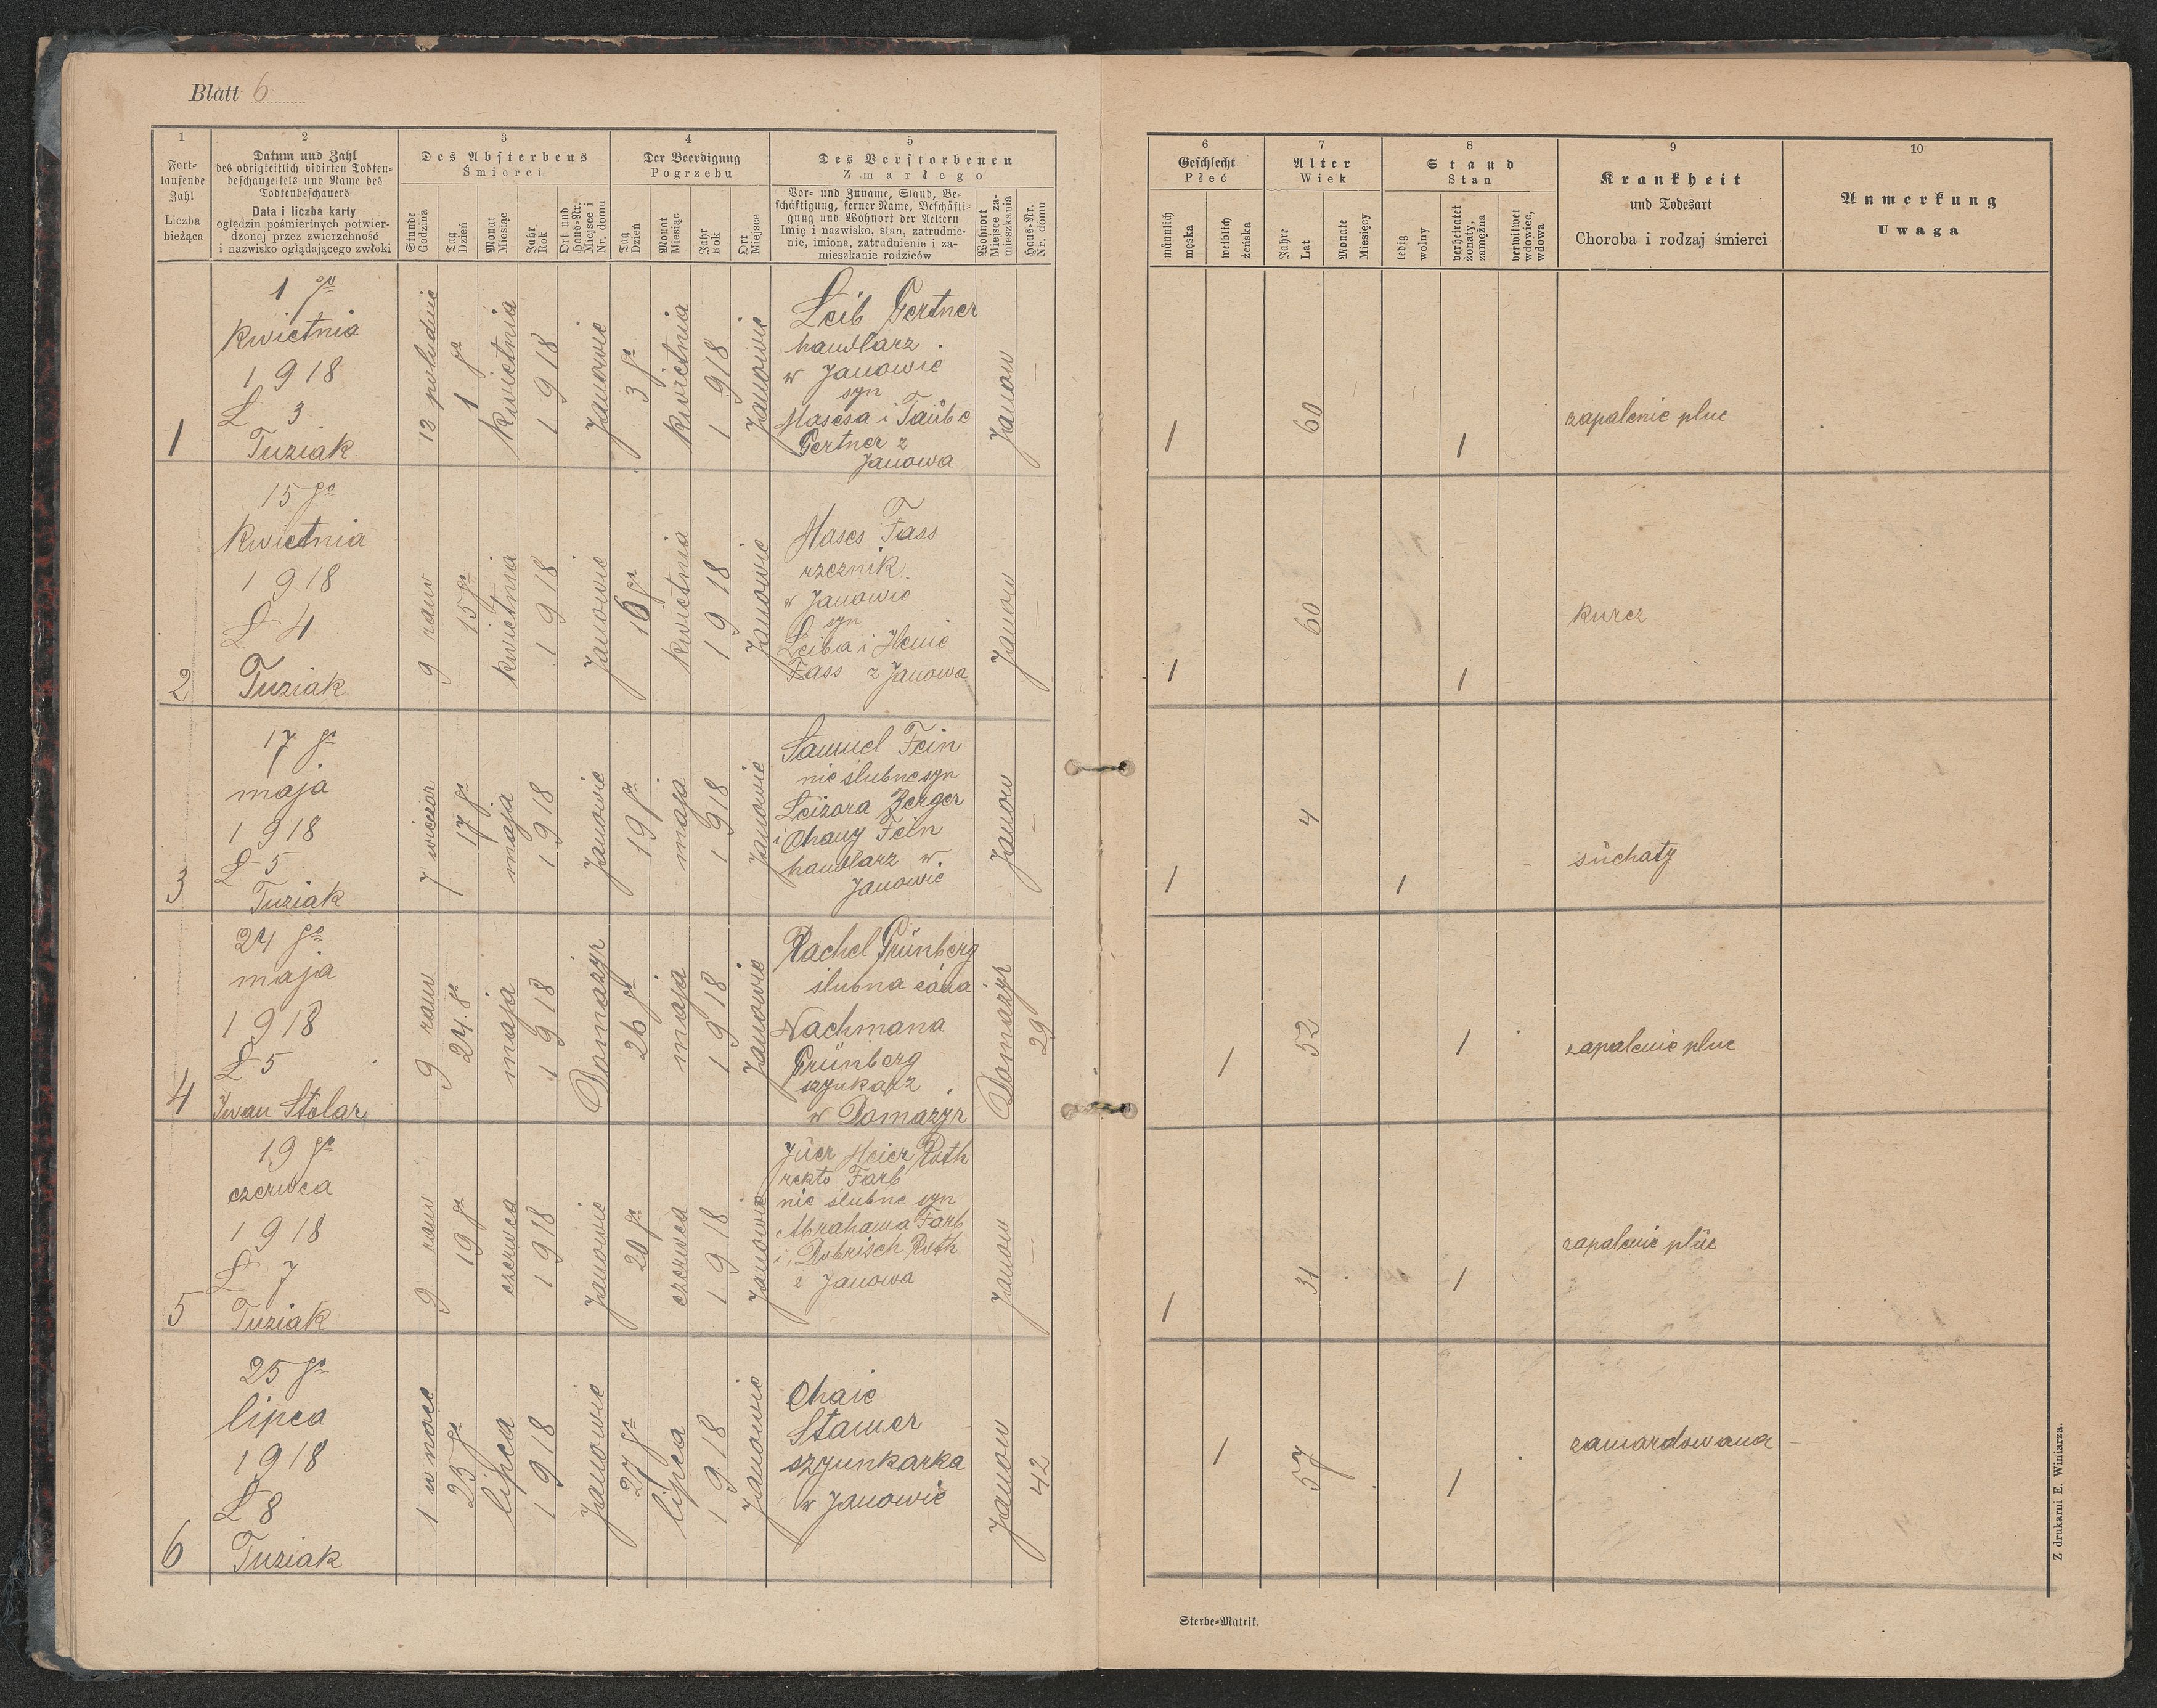 Blatt 6
1
2
3
4
5
Fort-
laufende
Zahl
Liczba
bieżąca
Datum und Zahl
des obrigkeitlich vidirten Todten-
beschauzettels und Name des
Todtenbeschauers
Data i liczba karty
oględzin pośmiertnych potwier-
dzonej przez zwierzchność
i nazwisko oglądającego zwłoki
Des Absterbens
Śmierci
Stunde
Godzina
Tag
Dzień
Monat
Miesiąc
Jahr
Rok
Ort und
Haus-Nr.
Miejsce i
Nr. domu
Der Beerdigung
Pogrzebu
Tag
Dzień
Monat
Miesiąc
Jahr
Rok
Ort
Miejsce
Des Verstorbenen
Zmarłego
Vor- und Zuname, Stand, Be-
schäftigung, ferner Name, Beschäfti-
gung und Wohnort der Aeltern
Imię i nazwisko, stan, zatrudnie-
nie, imiona, zatrudnienie i za-
mieszkanie rodziców
Wohnort
Miejsce za-
mieszkania
Haus-Nr.
Nr. domu
6
7
8
9
10
Geschlecht
Płeć
männlich
męska
weiblich
żeńska
Alter
Wiek
Jahre
Lat
Monate
Miesięcy
Stand
Stan
ledig
wolny
verheiratet
żonaty,
zamężna
verwitwet
wdowiec,
wdowa
Krankheit
und Todesart
Choroba i rodzaj śmierci
Anmerkung
Uwaga
1
1 go
kwietnia
1918
L 3
Tuziak
12 południe
1 go
kwietnia
1918
Janowie
3 go
kwietnia
1918
Janowie
Leib Gertner
handlarz
w Janowie
syn
Mascsa i Taübe
Gertner z
Janowa
Janow
—
1
60
1
zapalenie pluc
2
15 go
kwietnia
1918
L 4
Tuziak
9 rano
15 go
kwietnia
1918
Janowie
16 go
kwietnia
1918
Janowie
Mases Fass
rzeznik
w Janowie
syn
Leiba i Henie
Fass z Janowa
Janow
—
1
60
1
kurcz
3
17 go
maja
1918
L 5
Tuziak
7 wieczor
17 go
maja
1918
Janowie
19 go
maja
1918
Janowie
Samuel Fein
nie ślubne syn
Leizora Berger
i Chany Fein
handlarz w
Janowie
Janow
—
1
4
1
süchaty
4
24 go
maja
1918
L 5
Iwan Stolar
9 rano
24 go
maja
1918
Domażyr
26 go
maja
1918
Janowie
Rachel Grünberg
ślubna
Nachmana
Grünberg
szynkarz
w Domażyr
Domażyr
29
1
52
1
zapalenie pluc
5
19 go
czerwca
1918
L 7
Tuziak
9 rano
19 go
czerwca
1918
Janowie
20 go
czerwca
1918
Janowie
Jüer Meier Roth
rekto Farb
nie ślubne syn
Abrahama Farb
i Dobrisch Roth
z Janowa
Janow
—
1
31
1
zapalenie plüc
6
25 go
lipca
1918
L 8
Tuziak
1 w noce
25 go
lipca
1918
Janowie
27 go
lipca
1918
Janowie
Chaie
Stamer
szynkarka
w Janowie
Janow
42
1
57
1
zamordowana
Sterbe-Matrik.
Z drukarni E. Winiarza.